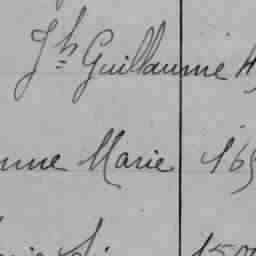 Jh Guillaume 4
nne Marie 165
150